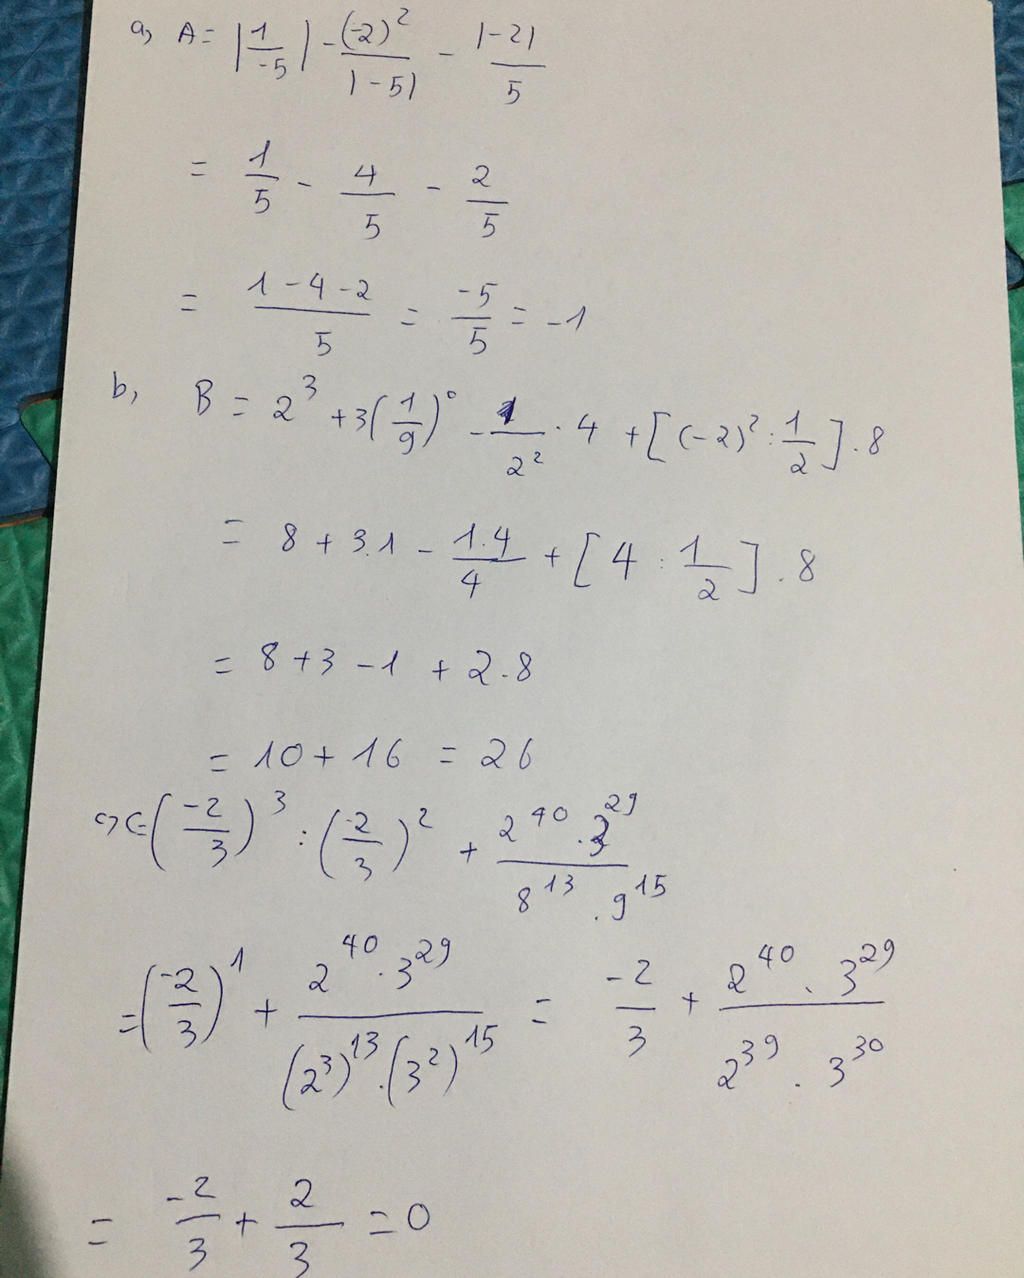 a, A = |1/-5| - (-2)²/|-5| - |-2|/5
= 1/5 - 4/5 - 2/5
= (1 - 4 - 2)/5 = -5/5 = -1
b, B = 2³ + 3(1/9)⁰ - 1/2² . 4 + [(-2)² : 1/2] . 8
= 8 + 3.1 - 1.4/4 + [4 : 1/2] . 8
= 8 + 3 - 1 + 2.8
= 10 + 16 = 26
c, C = (-2/3)³ : (-2/3)² + (2⁴⁰ . 3²⁹)/(8¹³ . 9¹⁵)
= (-2/3)¹ + (2⁴⁰ . 3²⁹)/((2³)¹³ . (3²)¹⁵) = -2/3 + (2⁴⁰ . 3²⁹)/(2³⁹ . 3³⁰)
= -2/3 + 2/3 = 0